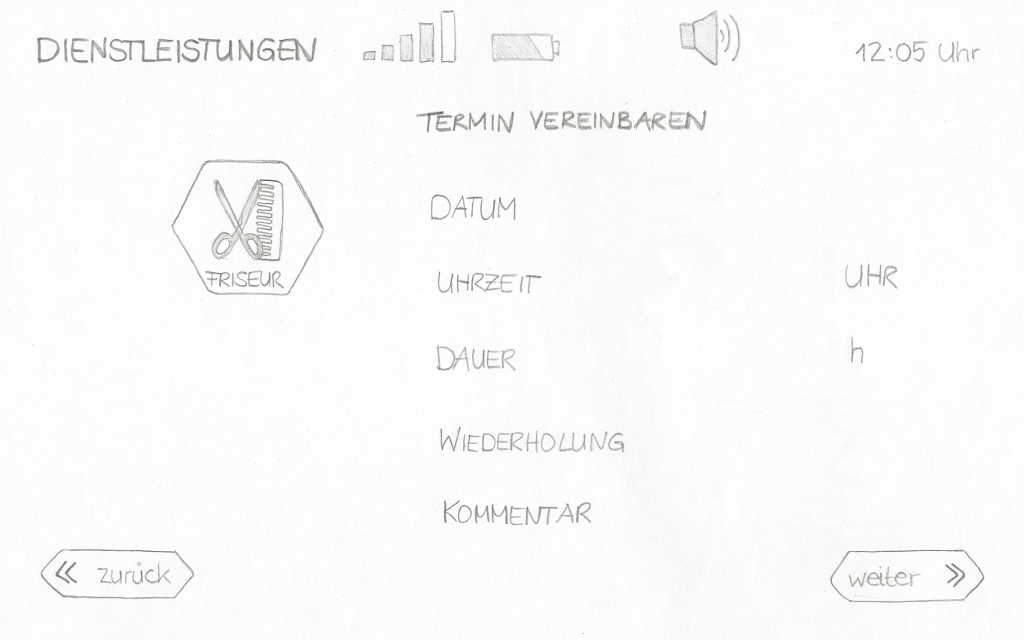 DIENSTLEISTUNGEN
12:05 Uhr
TERMIN VEREINBAREN
FRISEUR
DATUM
UHRZEIT UHR
DAUER h
WIEDERHOLUNG
KOMMENTAR
« zurück
weiter »